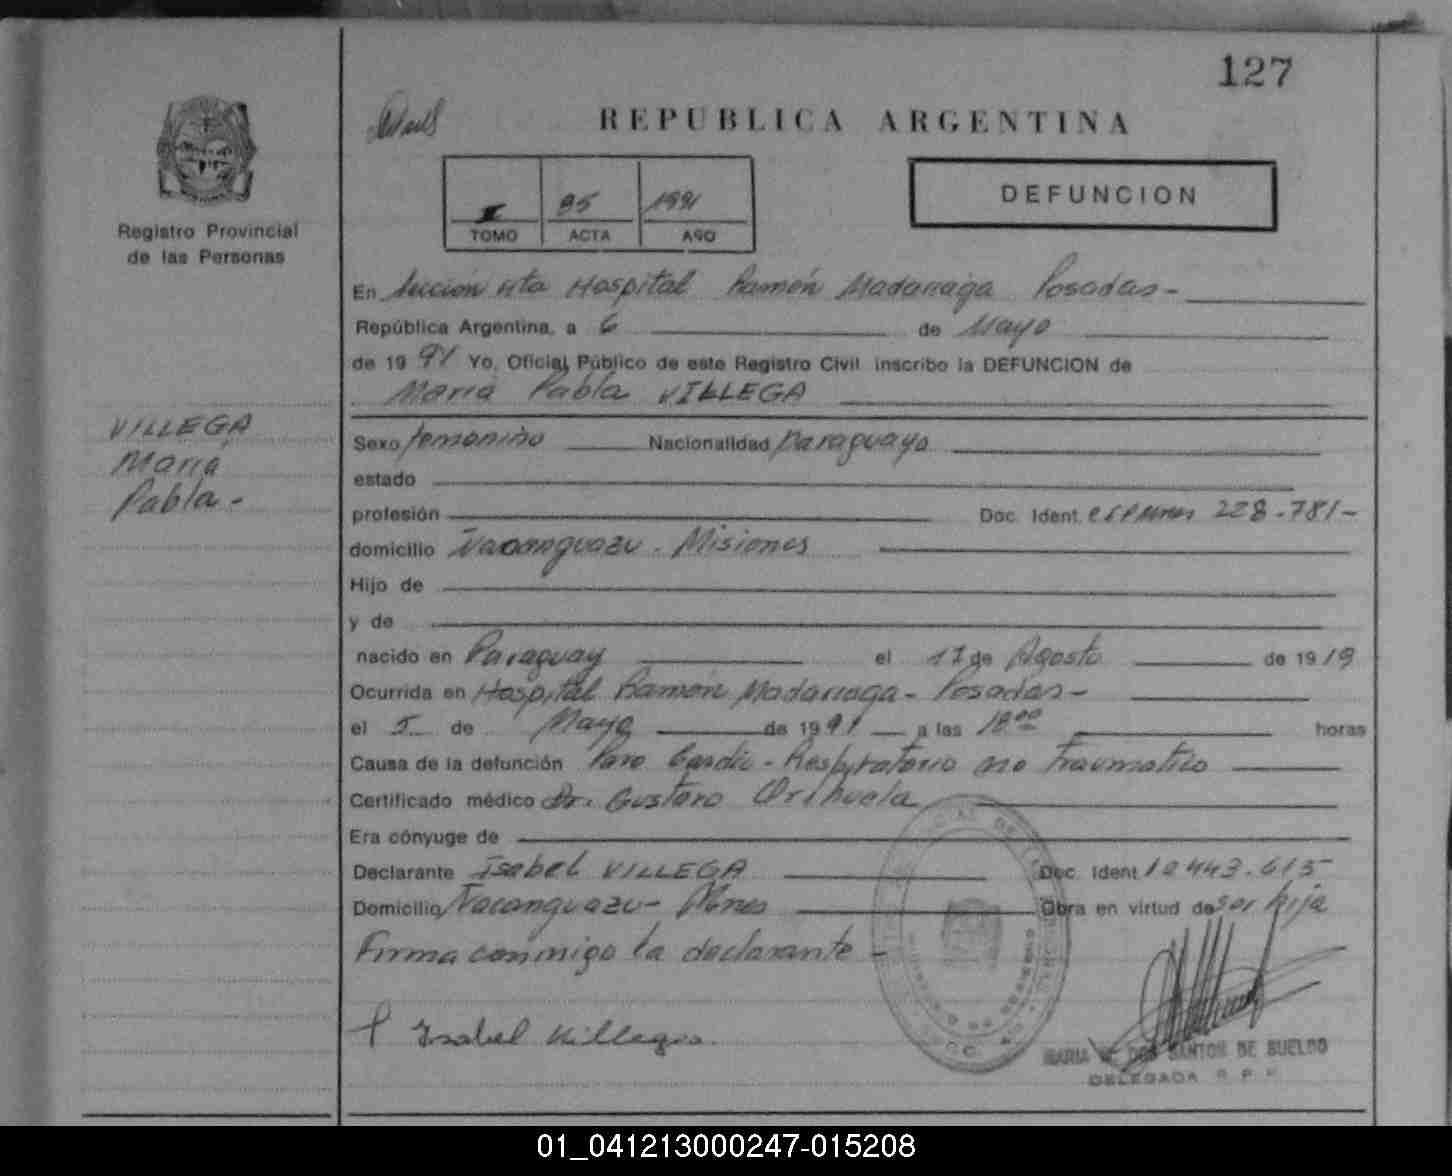 127
REPUBLICA ARGENTINA
DEFUNCION
I 95 1991
TOMO ACTA AÑO
Registro Provincial
de las Personas
En Sección 4ta Hospital Ramón Madariaga Posadas-
República Argentina, a 6 de Mayo
de 1991 Yo, Oficial Público de este Registro Civil inscribo la DEFUNCION de
Maria Pabla VILLEGA
VILLEGA
Maria
Pabla-
Sexo femenino Nacionalidad Paraguaya
estado
profesión Doc. Ident. 228.781-
domicilio Ñacanguazu. Misiones
Hijo de
y de
nacido en Paraguay el 17 de Agosto de 1919
Ocurrida en Hospital Ramón Madariaga- Posadas-
el 5 de Mayo de 1991 a las 18 00 horas
Causa de la defunción Paro Cardio-Respiratorio no Traumatico
Certificado médico Dr. Gustavo Orihuela
Era cónyuge de
Declarante Isabel VILLEGA Doc. Ident. 10.443.615
Domicilio Ñacanguazu- Mnes Obra en virtud de ser hija
Firma conmigo la declarante-
Isabel Villega.
MARIA DOS SANTOS DE SUELDO
DELEGADA R. P. P.
01_041213000247-015208